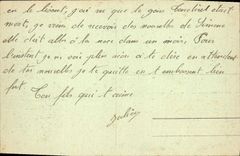 en le lisant, j'ai vu que le gars était
mort, je viens de recevoir des nouvelles de Simone
elle doit aller à la mer dans un mois, Pour
l'instant je ne vois plus rien à te dire en attendant
de tes nouvelles je te quitte en t'embrassant bien
fort
Ton fils qui t'aime